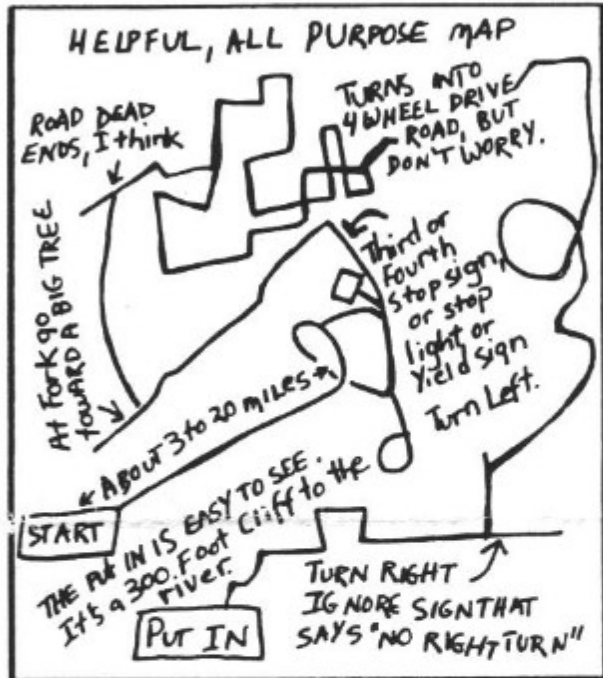 HELPFUL, ALL PURPOSE MAP
ROAD DEAD
ENDS, I think
TURNS INTO
4 WHEEL DRIVE
ROAD, BUT
DON'T WORRY.
At Fork go
toward A BIG TREE
Third or
Fourth
stop sign,
or stop
light or
Yield sign
Turn Left.
ABOUT 3 to 20 miles
START
THE PUT IN IS EASY TO SEE.
It's a 300 Foot Cliff to the
river.
PUT IN
TURN RIGHT
IGNORE SIGN THAT
SAYS "NO RIGHT TURN"